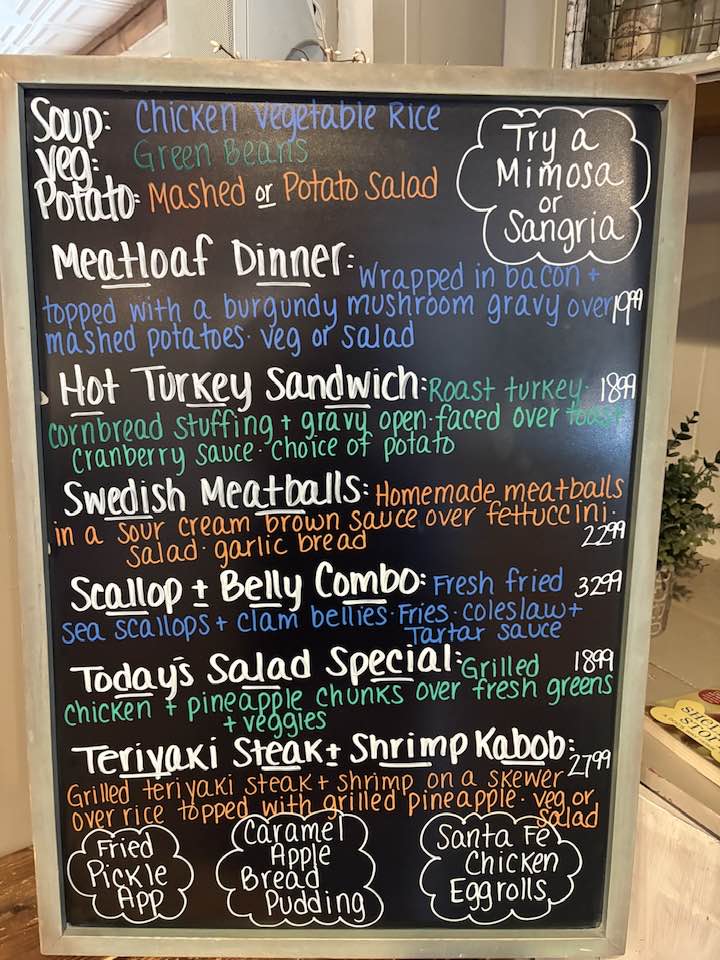 Soup: Chicken Vegetable Rice
Veg: Green Beans
Potato: Mashed or Potato Salad
Try a
Mimosa
or
Sangria
Meatloaf Dinner: Wrapped in bacon +
topped with a burgundy mushroom gravy over 1999
mashed potatoes · veg or salad
Hot Turkey Sandwich: Roast turkey · 1899
cornbread stuffing + gravy open-faced over toast
cranberry sauce · choice of potato
Swedish Meatballs: Homemade meatballs
in a sour cream brown sauce over fettuccini ·
salad · garlic bread 2299
Scallop + Belly Combo: Fresh fried 3299
sea scallops + clam bellies · Fries · coleslaw +
Tartar sauce
Today's Salad Special: Grilled 1899
chicken + pineapple chunks over fresh greens
+ veggies
Teriyaki Steak + Shrimp Kabob: 2799
Grilled teriyaki steak + shrimp on a skewer
over rice topped with grilled pineapple · veg or
salad
Fried
Pickle
App
Caramel
Apple
Bread
Pudding
Santa Fe
Chicken
Eggrolls